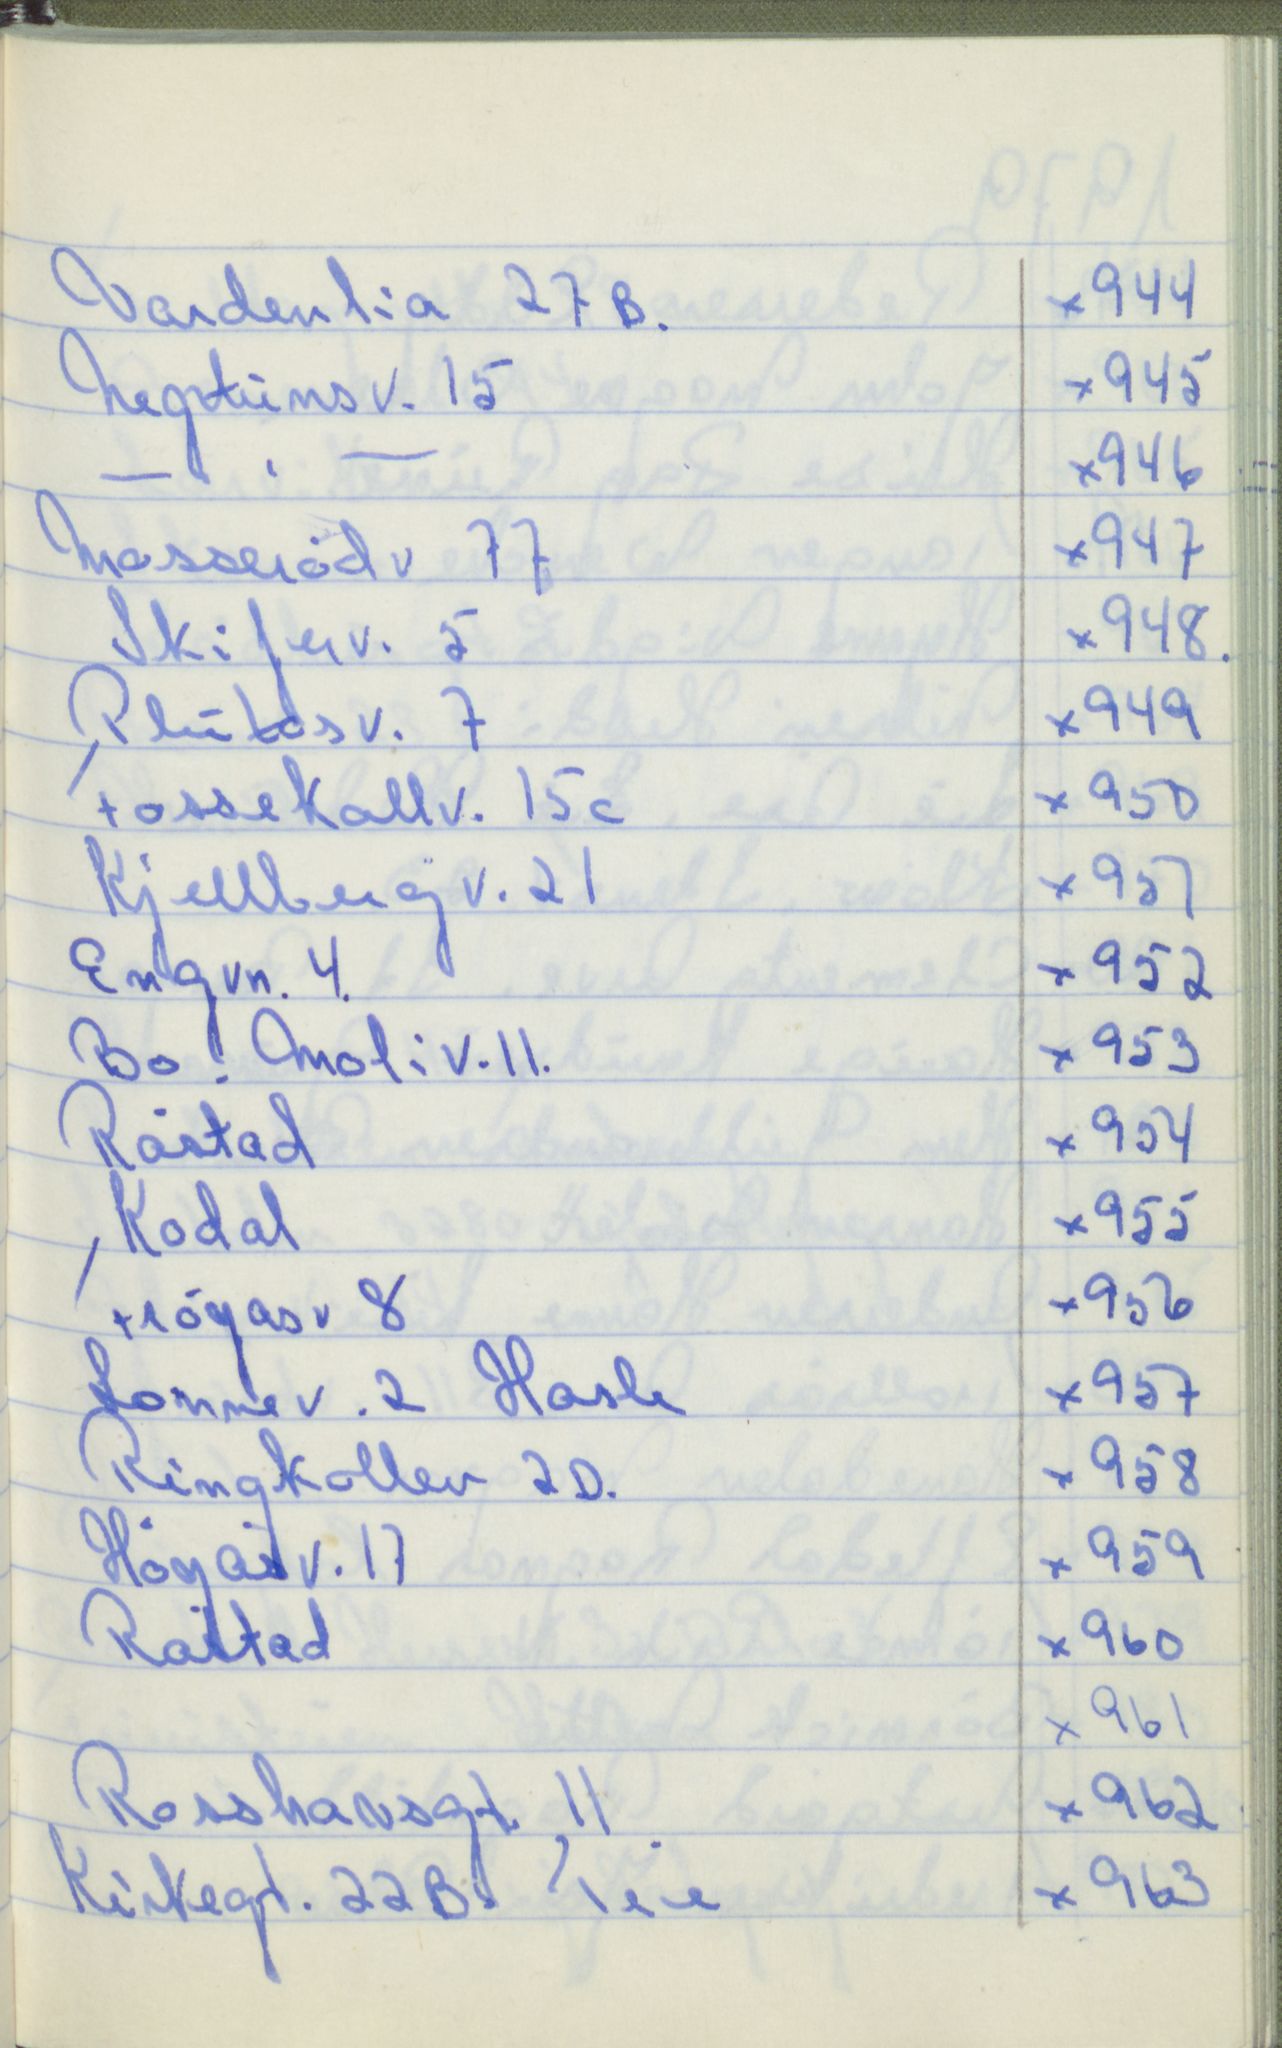 Vardenlia 27 B. x 944
Neptuns v. 15 x 945
— " — x 946
Mosserød v 77 x 947
Skifer v. 5 x 948.
Plutos v. 7 x 949
Fossekall v. 15c x 950
Kjellberg v. 21 x 951
Eng vn. 4. x 952
Bo: Moli v. 11. x 953
Råstad x 954
Kodal x 955
Trógas v 8 x 956
Sonne v. 2 Hasle x 957
Ringkollev 2D. x 958
Högås v. 17 x 959
Råstad x 960
x 961
Rosshavsgt. 11 x 962
Kirkegt. 22 B. Teie x 963